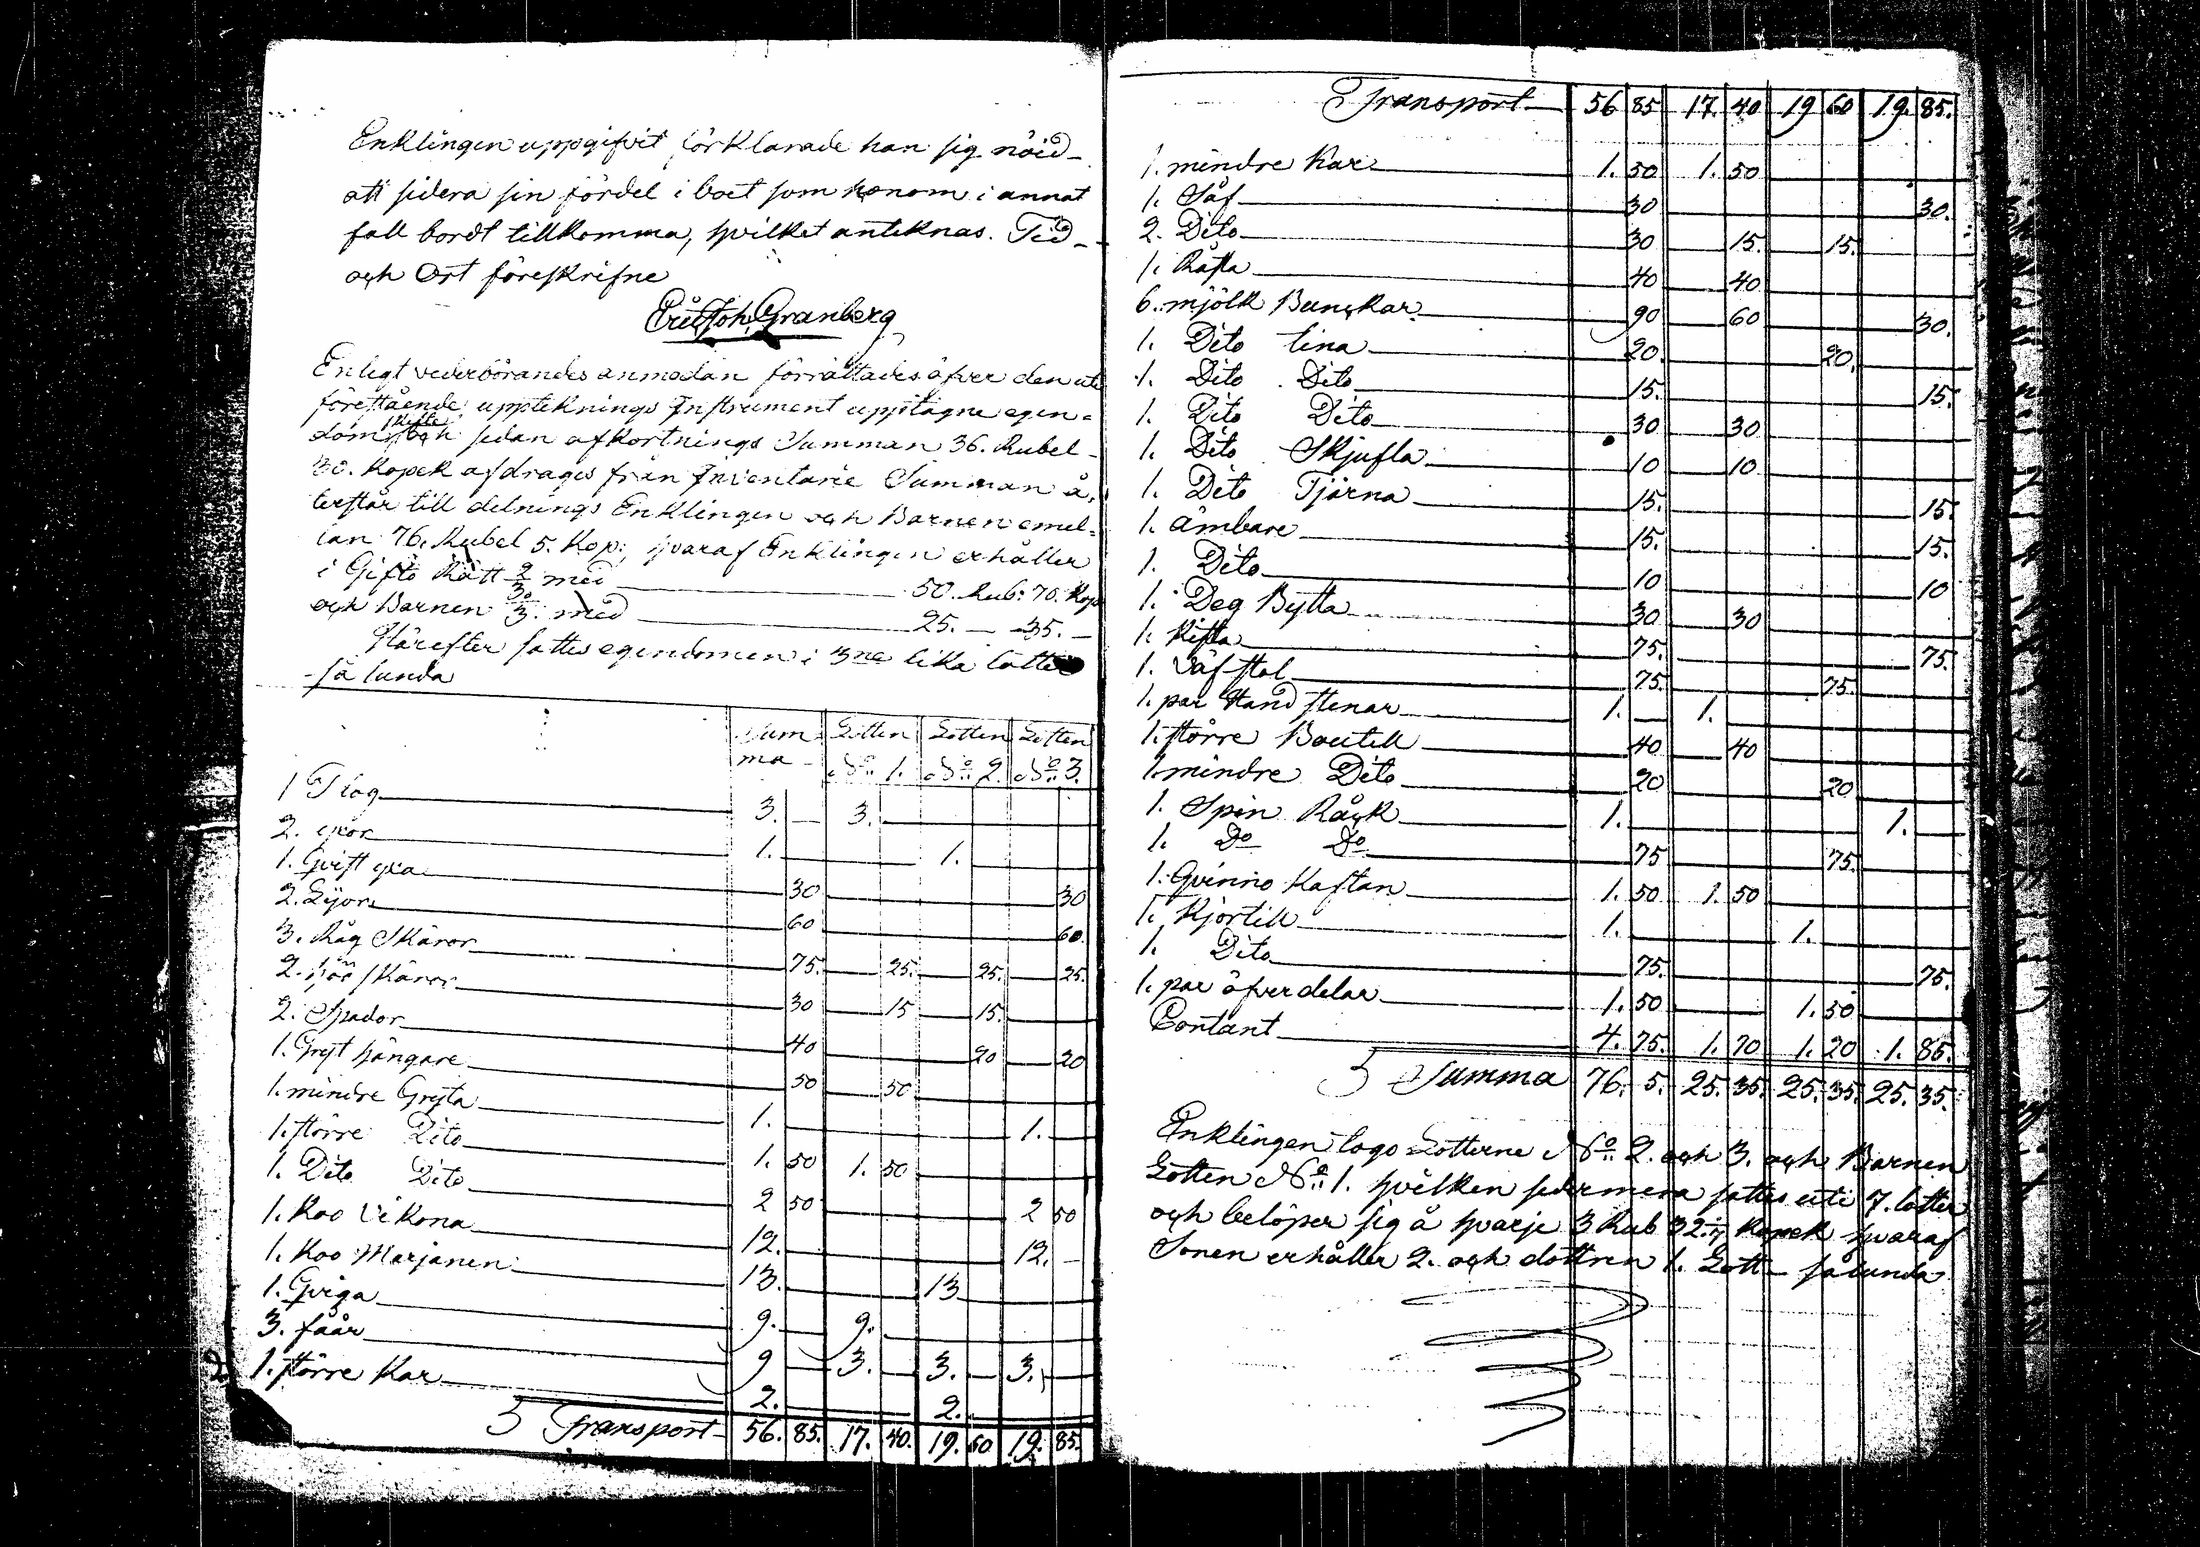 Enklingen uppgifvit förklarade han sig nöid
att sidera sin fördel i boet som honom i annat
fall bordt tillkomma, hvilket anteknas. Tid
och Ort föreskrifne
Joh. Granberg
Enligt vederbörandes anmodan förrättades öfver den uti
förestående uppteknings Instrument upptagne egen=
dom skifte och sedan afkortnings Summan 36. Rubel
30. Kopek afdrages från Inventarie Summan å,
terstår till delnings Enklingen och Barnen emel=
lan 76. Rubel 5. Kop: hvaraf Enklingen erhåller
i Gifto Rätt 2/3 med 50. Rub: 70. Kop
och Barnen /3. med 25. — 35. —
Härefter sattes egendomen i 3ne lika lotter
så lunda
Sum Lotten Lotten Lotten
ma No 1. No 2. No 3.
1 Plog 3. — 3. —
2. yxor 1. 1.
1. Qvist yxa 30 30
2. Lijor 60 60
3. Råg Skäror 75. 25. 25. 25
2. Skäror 30 15 15.
2. Spador 40 20 20
1. Gryt hängare 50 50
1. mindre Gryta 1. 1. —
1. större Dito 1. 50 1. 50
1. Dito Dito 2 50 2 50
1. Koo Vikona 12. 12. —
1. Koo Marjanen 13. 13
1. Qviga 9. 9.
3. fåår 9 3. 3. 3.
1. större Kar 2. 2.
Transport 56. 85. 17. 40. 19. 60 19. 85.
Transport 56 85 17. 40 19 60 19. 85.
1. mindre Kar 1. 50 1. 50
1. Såf 30 30.
2. Dito 30 15. 15.
1. Räfla 40 40
6. mjölk Bunckar 90 60 30.
1. Dito tina 20. 20.
1. Dito Dito 15. 15.
1. Dito Dito 30 30
1. Dito Skjufla 10 10
1. Dito Tjärna 15. 15.
1. Ämbare 15. 15.
1. Dito 10 10
1. Deg Bytta 30 30
1. Kista 75. 75.
1. Väf stol 75. 75.
1. par Hand stenar 1. — 1.
1. större Boutell 40 40
1. mindre Dito 20 20
1. Spin Råck 1. 1. —
1. Do Do 75 75.
1. Qvinno Kaftan 1. 50 1. 50
1. Kjortill 1. 1.
1. Dito 75. 75.
1. par öfverdelar 1. 50 1. 50
Contant 4. 75. 1. 70 1. 20 1. 85.
Summa 76. 5. 25. 35. 25. 35. 25. 35.
Enklingen togo Lotterne No 2. och 3. och Barnen
Lotten No 1. hvilken sedermera sattes uti 7. lotter
och belöper sig å hvarje 3 Rub 32 Kopek hvaraf
Sonen erhåller 2. och dottren 1. Lott — så lunda